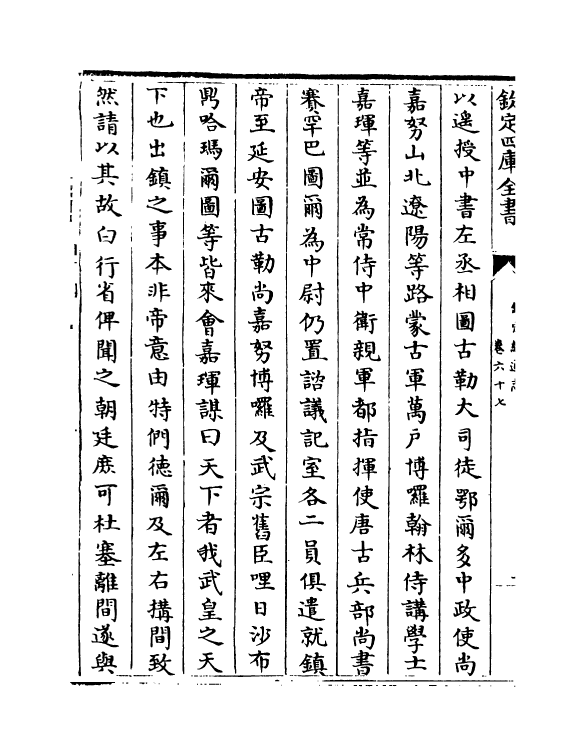 欽定四庫全書
卷六十七
以遙授中書左丞相圖古勒大司徒鄂爾多中政使尚
嘉努山北遼陽等路蒙古軍萬户博囉翰林侍講學士
嘉琿等並為常侍中衛親軍都指揮使唐古兵部尚書
賽罕巴圖爾為中尉仍置諮議記室各二員俱遣就鎮
帝至延安圖古勒尚嘉努博囉及武宗舊臣哩日沙布
鼎哈瑪爾圖等皆來會嘉琿謀曰天下者我武皇之天
下也出鎮之事本非帝意由特們德爾及左右搆間致
然請以其故白行省俾聞之朝廷庶可杜塞離間遂與